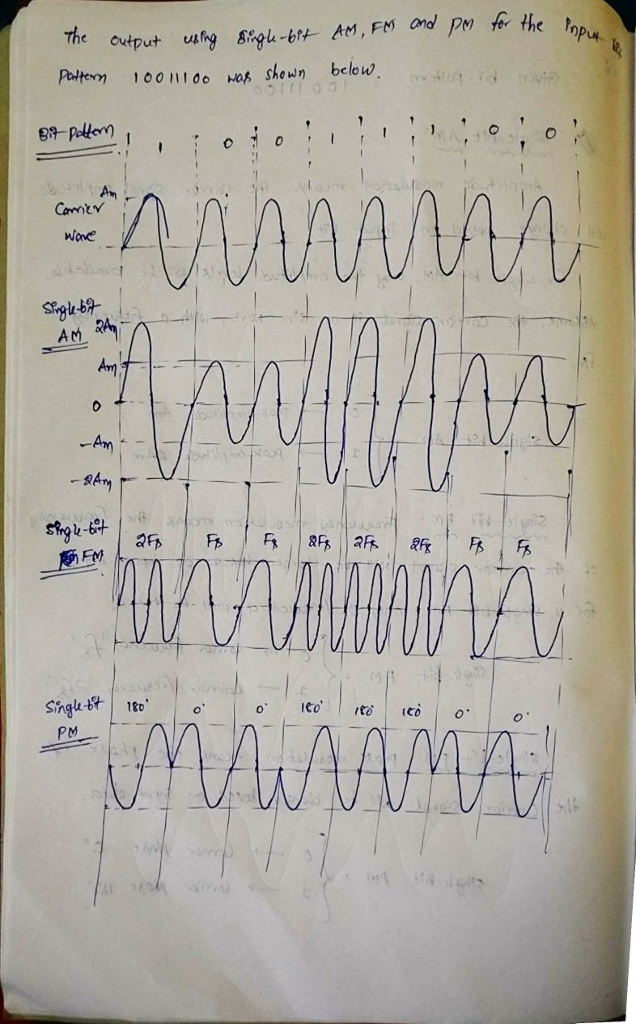 The output using Single-bit AM, FM and PM for the input
Pattern 10011100 was shown below.
Bit Pattern 1 1 0 0 1 1 1 0 0
Am
Carrier
wave
Single-bit
AM 2Am
Am
0
-Am
-2Am
Single-bit
FM 2Fs Fs Fs 2Fs 2Fs 2Fs Fs Fs
Single-bit 180° 0° 0° 180° 180° 180° 0° 0°
PM